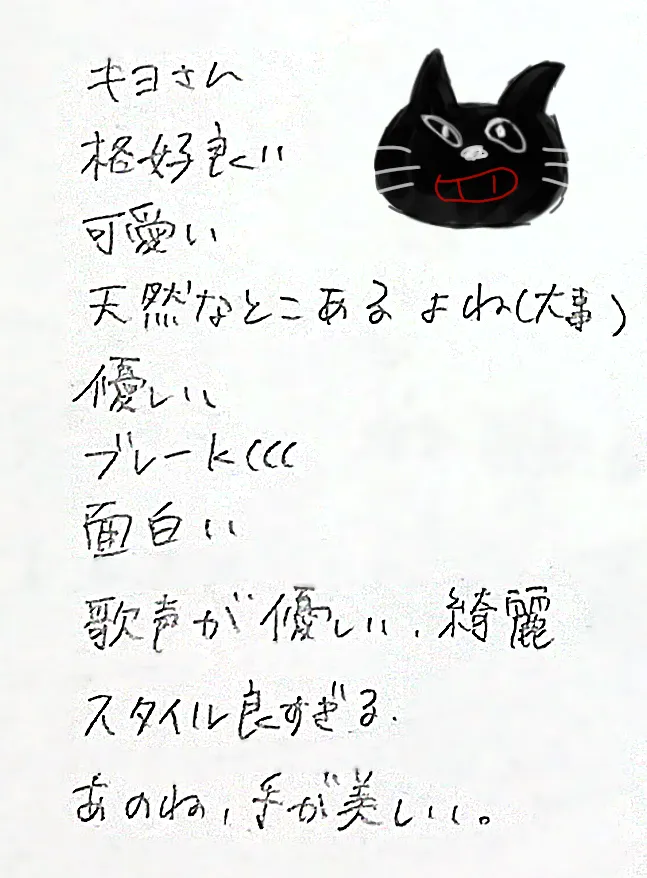 キヨさん
格好良い
可愛い
天然なとこあるよね(大事)
優しい
ブレード(((
面白い
歌声が優しい、綺麗
スタイル良すぎる.
あのね、手が美しい。